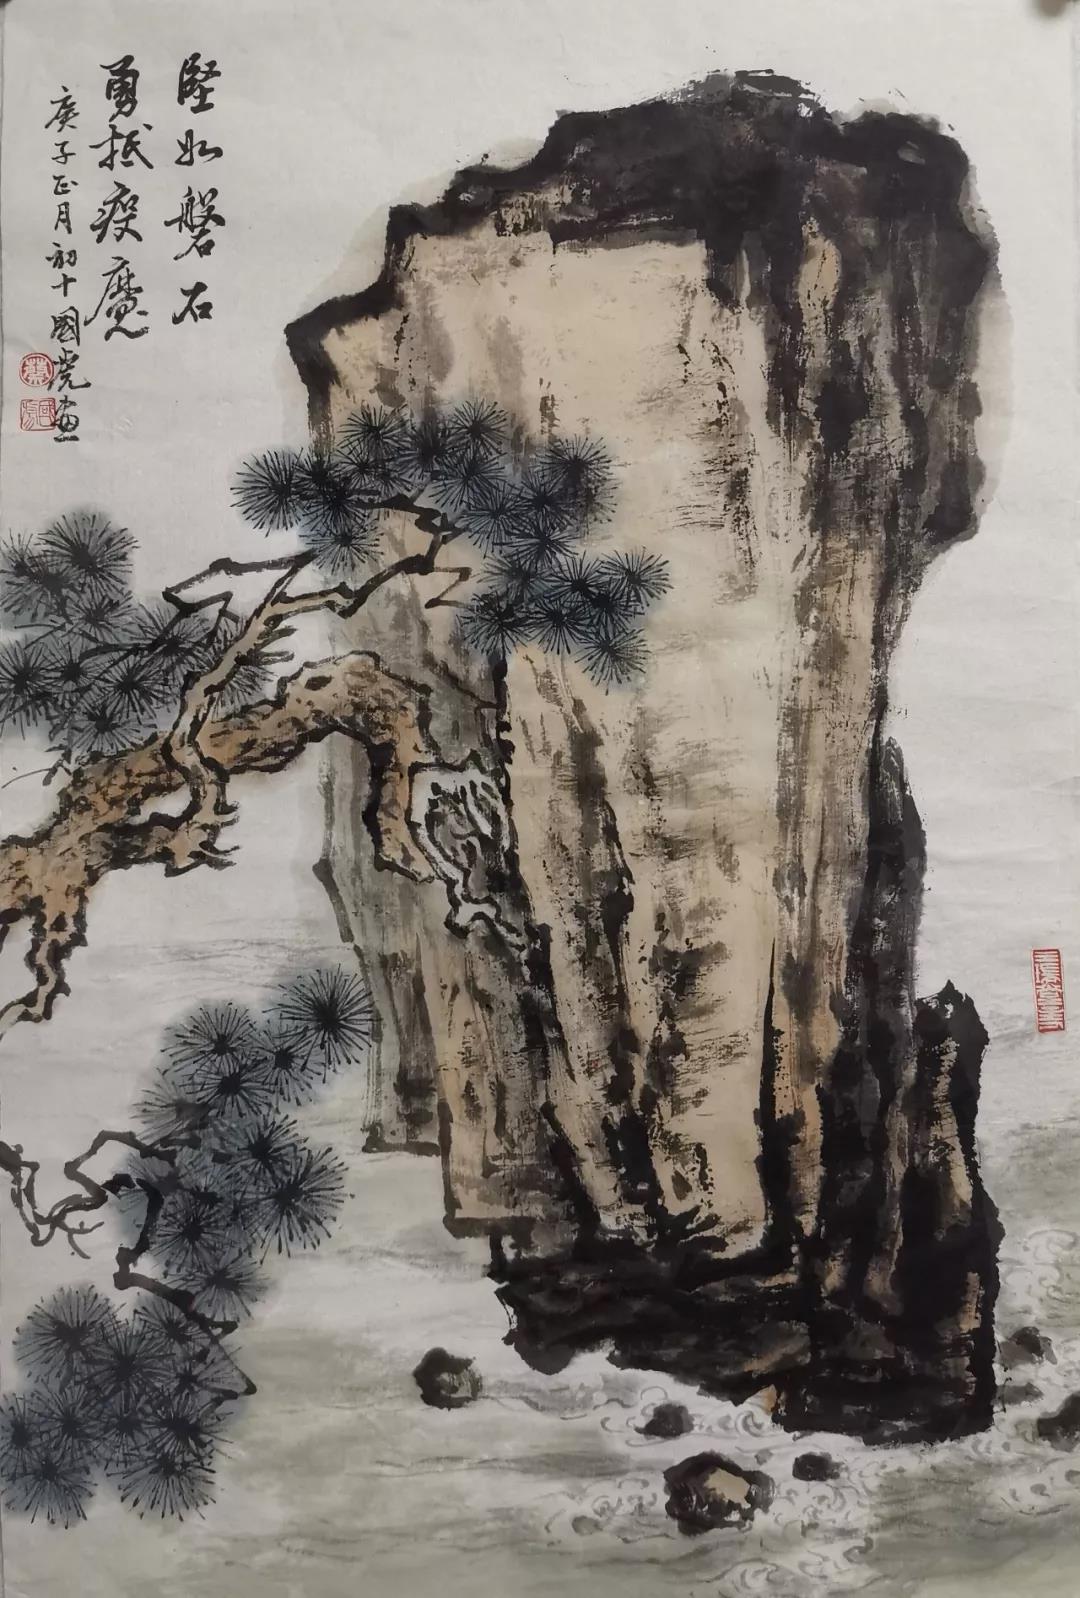 坚如磐石
勇抵疫魔
庚子正月初十國虎画